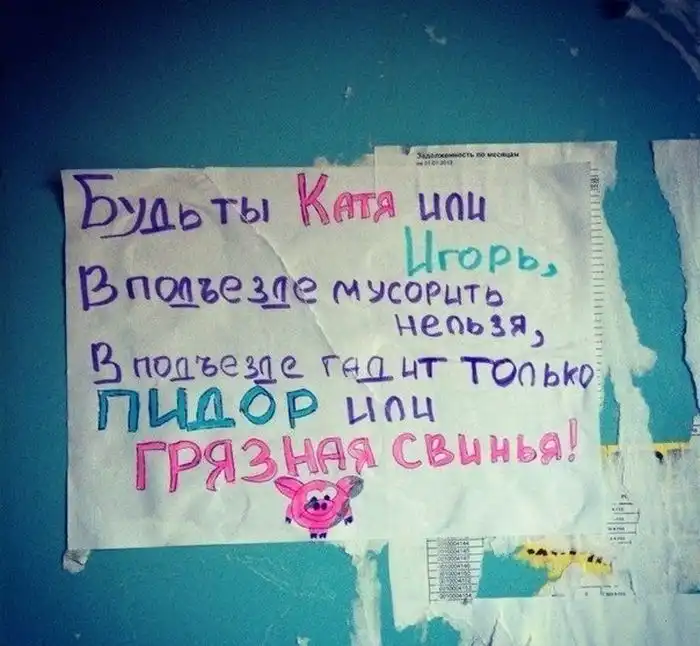 Задолженность по месяцам
на 01.01.2013
Будь ты Катя или
Игорь,
В подъезде мусорить
нельзя,
В подъезде гадит только
ПИДОР или
ГРЯЗНАЯ СВИНЬЯ!